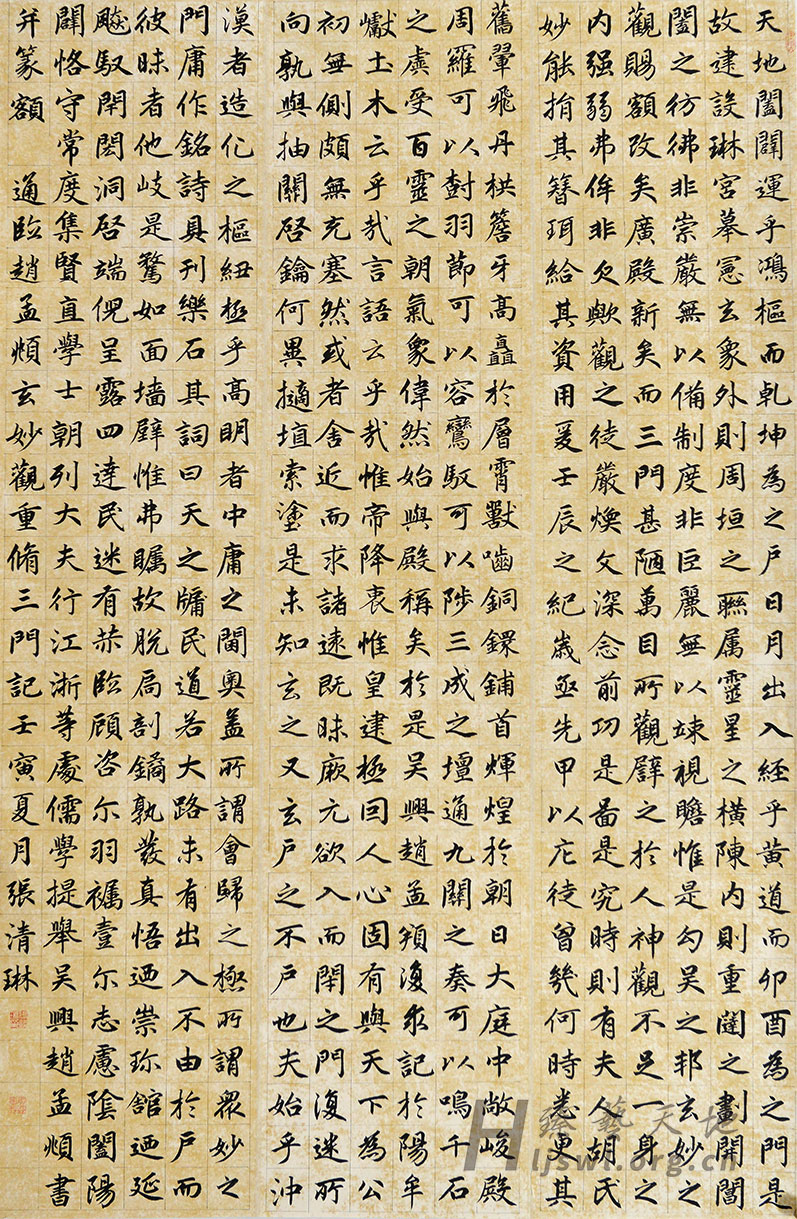 天地闔闢運乎鴻樞而乾坤為之戶日月出入経乎黃道而卯酉為之門是
故建設琳宮摹憲玄象外則周垣之聯属靈星之橫陳内則重闥之劃開閶
闔之彷彿非崇嚴無以備制度非巨麗無以竦視瞻惟是勾吴之邦玄妙之
觀賜額改矣廣殿新矣而三門甚陋萬目所觀辟之於人神觀不足一身之
内强弱弗侔非欠歟觀之徒嚴煥文深念前功是啚是究時則有夫人胡氏
妙能捐其簪珥給其資用爰壬辰之紀歲亟先甲以庀徒曾幾何時悉更其
舊翬飛丹栱簷牙高矗於層霄獸嚙銅鐶鋪首煇煌於朝日大庭中敞峻殿
周羅可以尌羽節可以容鸞馭可以陟三成之壇通九關之奏可以鳴千石
之虡受百靈之朝氣象偉然始與殿稱矣於是吴興趙孟頫復求記於陽牟
巘土木云乎哉言語云乎哉惟帝降衷惟皇建極囙人心固有與天下為公
初無側頗無充塞然或者舍近而求諸遠既昧厥元欲入而閉之門復迷所
向孰與抽關啓鑰何異擿埴索塗是未知玄之又玄戶之不戶也夫始乎沖
漠者造化之樞紐極乎高明者中庸之閫奥盖所謂會歸之極所謂衆妙之
門庸作銘詩具刊樂石其詞曰天之牖民道若大路未有出入不由於戶而
彼昧者他岐是騖如面墙壁惟弗矚故脫扃剖鐍孰發真悟迺崇珎館迺延
飈馭閈閎洞啓端倪呈露四達民迷有恭臨顧咨尔羽襹壹尔志慮陰闔陽
闢恪守常度集賢直學士朝列大夫行江浙等處儒學提舉吴興趙孟頫書
并篆額 通臨趙孟頫玄妙觀重脩三門記壬寅夏月張清琳
臻藝天地
Hljswl.org.cn